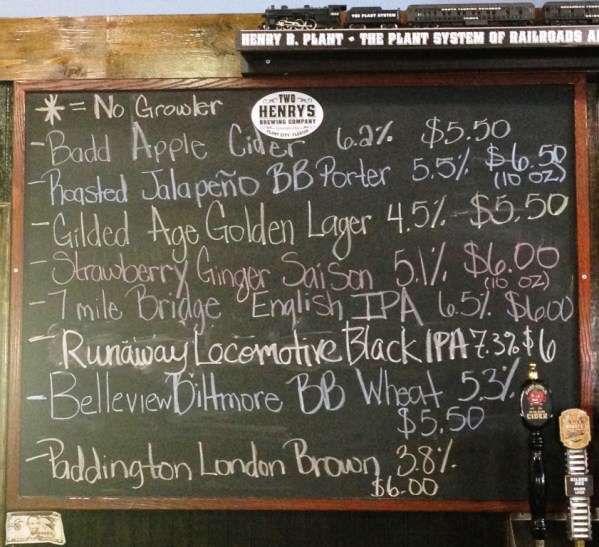 THE PLANT SYSTEM
HENRY B. PLANT • THE PLANT SYSTEM OF RAILROADS A
* = No Growler
TWO
HENRYS
BREWING COMPANY
PLANT CITY, FLORIDA
- Badd Apple Cider 6.2% $5.50
- Roasted Jalapeño BB Porter 5.5% $6.50
(10 oz)
- Gilded Age Golden Lager 4.5% $5.50
- Strawberry Ginger Saison 5.1% $6.00
(10 oz)
- 7 mile Bridge English IPA 6.5% $6.00
- Runaway Locomotive Black IPA 7.3% $6
- Belleview Biltmore BB Wheat 5.3%
$5.50
- Paddington London Brown 3.8%
$6.00
CIDER